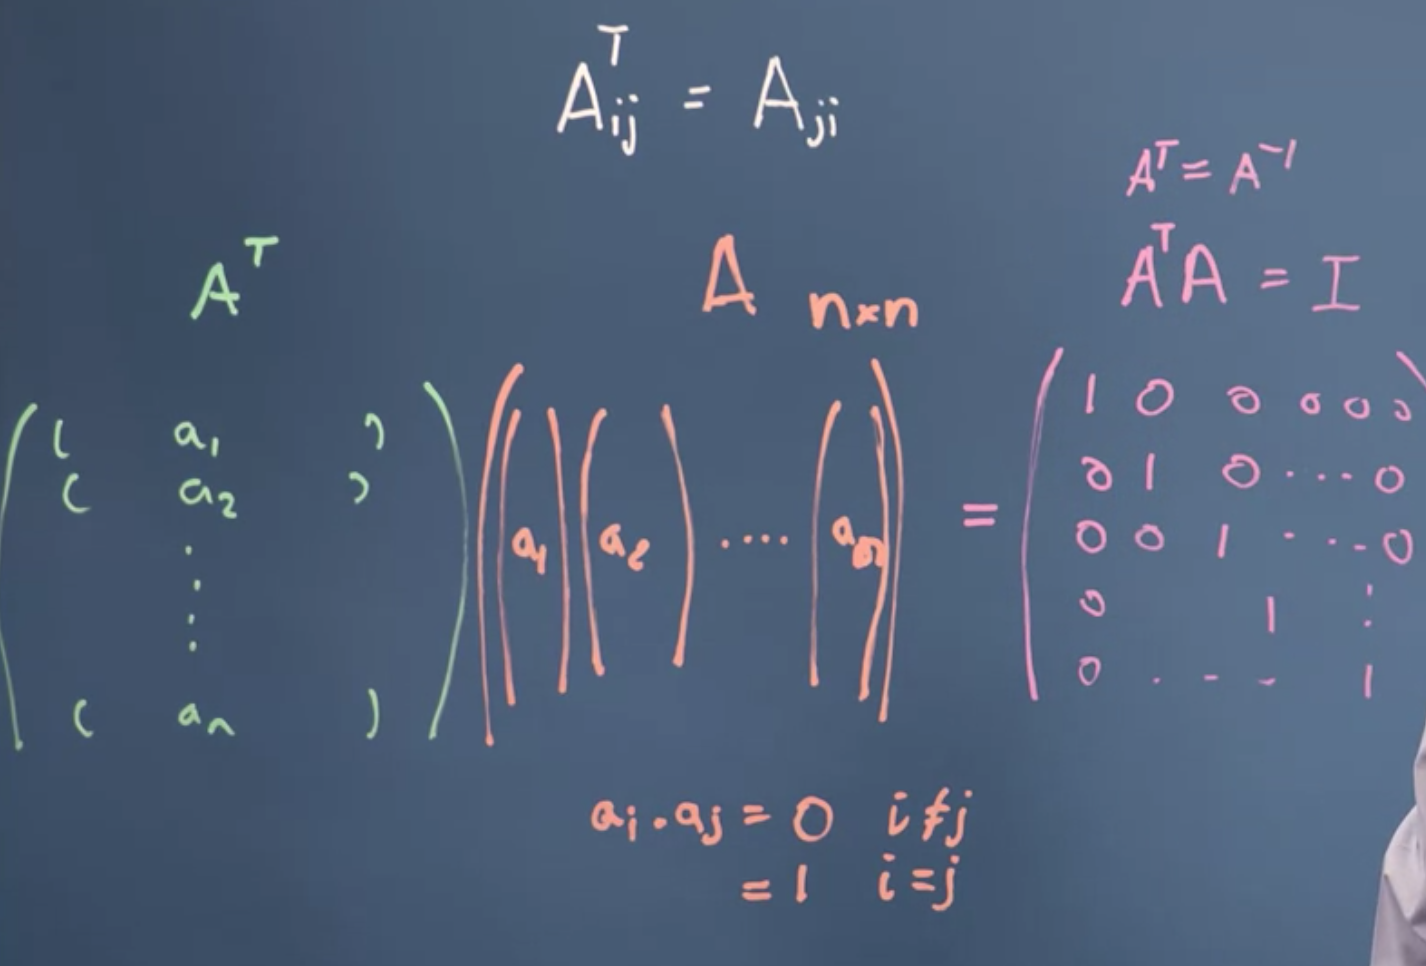 Aᵀij = Aji
Aᵀ = A⁻¹
Aᵀ A n×n AᵀA = I
( ( a₁ ) ( a₂ ) ⋮ ( aₙ ) ) ( ( a₁ ) ( a₂ ) .... ( aₙ ) ) = ( 1 0 0 0 0 0
0 1 0 ... 0
0 0 1 ... 0
0 1 ⋮
0 . . . 1
aᵢ . aⱼ = 0 i ≠ j
= 1 i = j